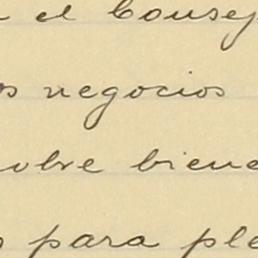 el Consej
os negocios
sobre biene
s para ple